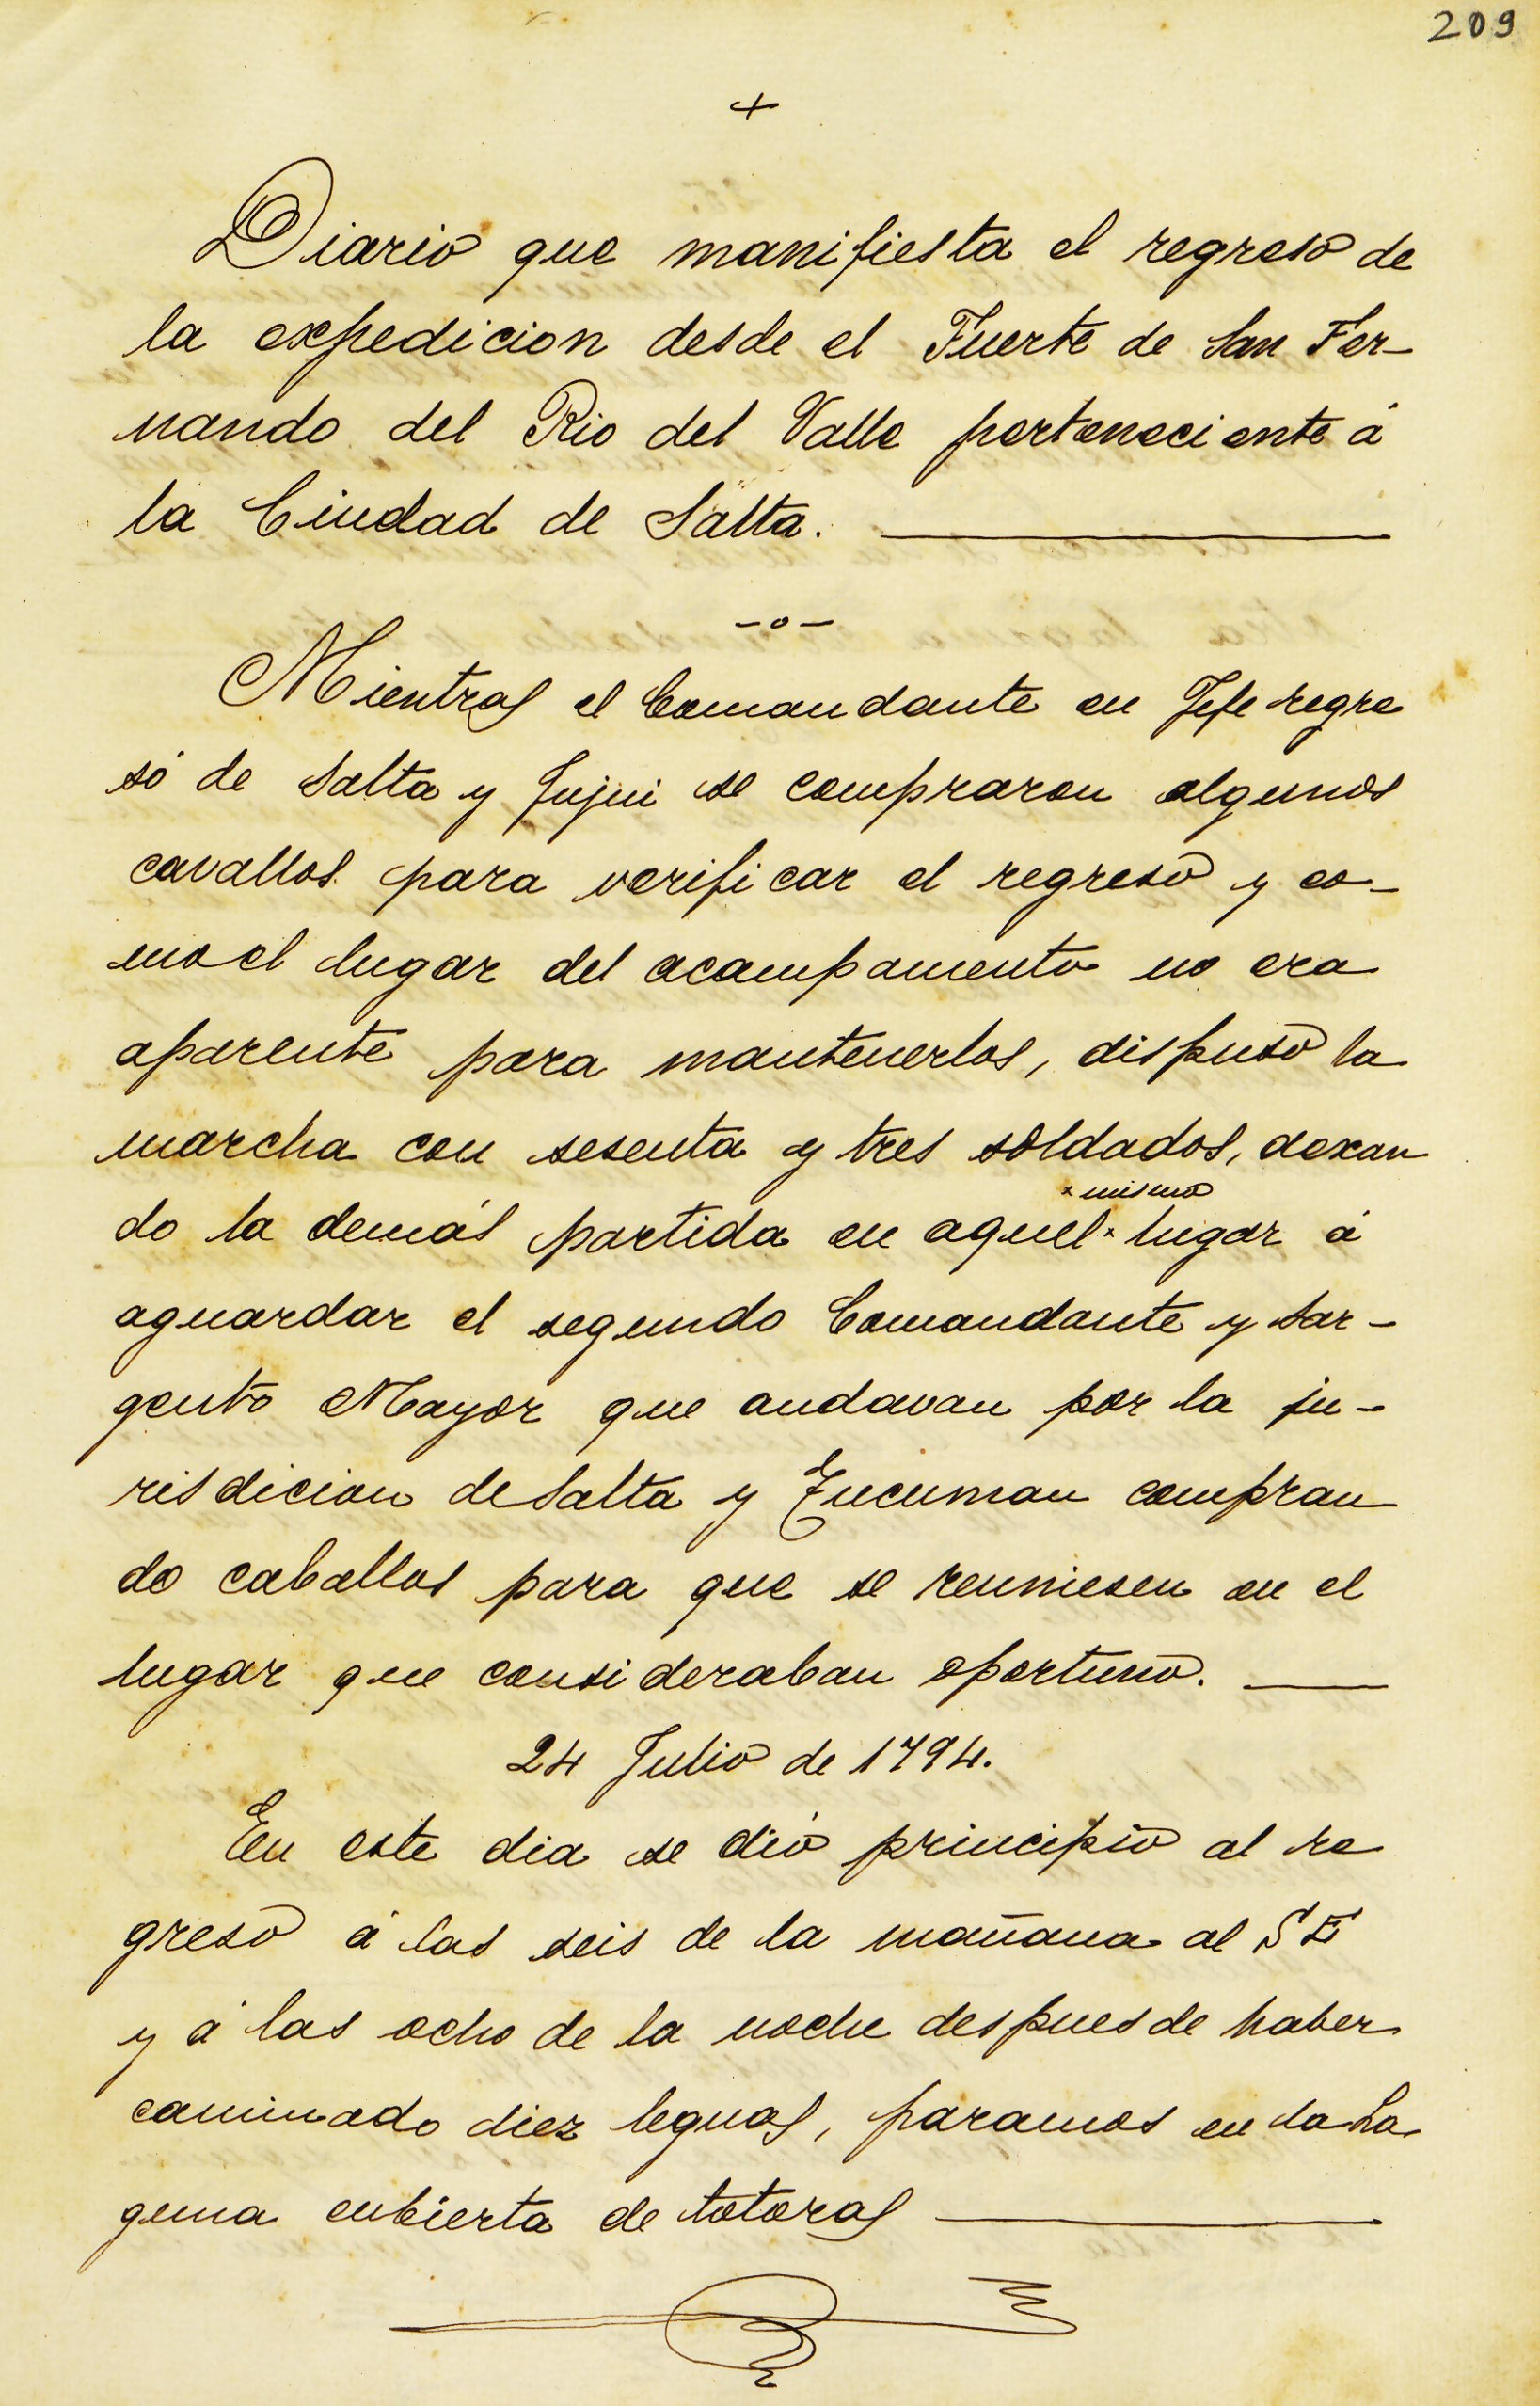 209
+
Diario que manifiesta el regreso de
la expedicion desde el Fuerte de San Fer-
nando del Rio del Valle perteneciente á
la Ciudad de Salta. ———
-o-
Mientras el Comandante en Jefe regre
só de Salta y Jujui se compraron algunos
cavallos para verificar el regreso y co-
mo el lugar del acampamento no era
aparente para mantenerlos, dispuso la
marcha con sesenta y tres soldados, dexan
× mismo
do la demás partida en aquel × lugar á
aguardar el segundo Comandante y Sar-
gento Mayor que andavan por la ju-
risdicion de Salta y Tucuman compran
do caballos para que se reuniesen en el
lugar que consideraban oportuno. —
24 Julio de 1794.
En este dia se dió principio al re
greso á las seis de la mañana al SE
y á las ocho de la noche despues de haber
caminado diez leguas, paramos en la La
guna cubierta de totoras ———